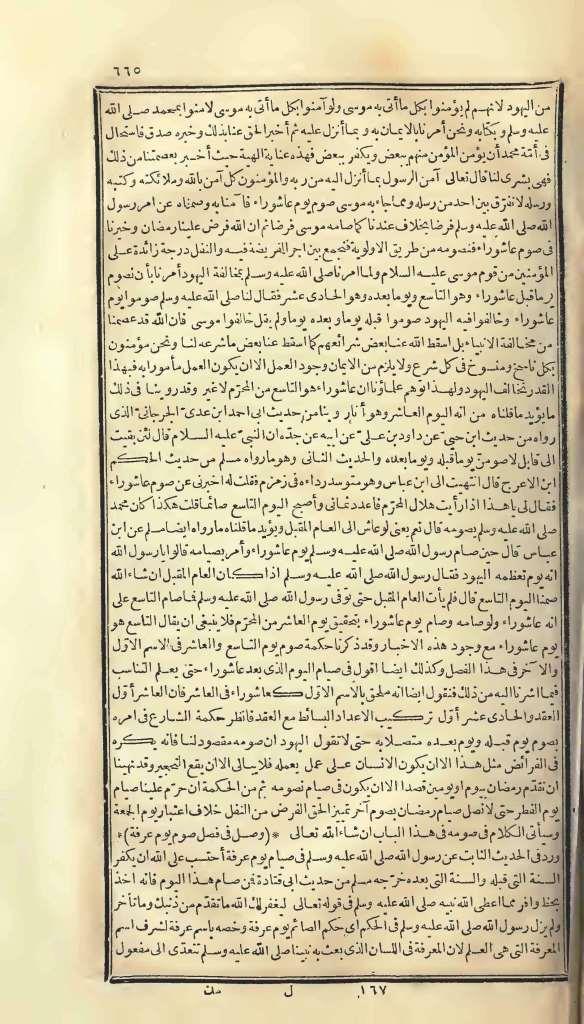 ٦٦٥
من اليهود لانهم لم يؤمنوا بكل ما أتى به موسى ولو آمنوا بكل ما أتى به موسى لآمنوا بمحمد صلى الله
عليه وسلم وبكتابه ونحن أمرنا بالايمان به وبما أنزل عليه ثم أخبر الحق عنا بذلك وخبره صدق فاستحال
فى أمّة محمد أن يؤمن المؤمن منهم ببعض ويكفر ببعض فهذه عناية الهية حيث أخبر بعصمتنا من ذلك
فهى بشرى لنا قال تعالى آمن الرسول بما أنزل اليه من ربه والمؤمنون كل آمن بالله وملائكته وكتبه
ورسله لا نفرّق بين احد من رسله ومما جاء به موسى صوم يوم عاشوراء فآمنا به وصمناه عن امر رسول
الله صلى الله عليه وسلم فرضا بخلاف عندنا كما صامه موسى فرضا ثم ان الله فرض علينا رمضان وخيرنا
فى صوم عاشوراء فنصومه من طريق الاولوية فنجمع بين اجر الفريضة فيه والنفل درجة زائدة على
المؤمنين من قوم موسى عليه السلام ولما امرنا صلى الله عليه وسلم بمخالفة اليهود أمرنا بأن نصوم
يوما قبل عاشوراء وهو التاسع ويوما بعده وهو الحادى عشر فقال لنا صلى الله عليه وسلم صوموا يوم
عاشوراء وخالفوا فيه اليهود صوموا قبله يوما وبعده يوما ولم يقل خالفوا موسى فان الله قد عصمنا
من مخالفة الانبياء بل اسقط الله عنا بعض شرائعهم كما اسقط عنا بعض ما شرعه لنا ونحن مؤمنون
بكل ناسخ ومنسوخ فى كل شرع ولا يلزم من الايمان وجود العمل الا ان يكون العمل مأمورا به فبهذا
القدر نخالف اليهود ولهذا توهم علماؤنا ان عاشوراء هو التاسع من المحرّم لا غير وقد روينا فى ذلك
ما يؤيد ما قلناه من انه اليوم العاشر وهو أنا روينا من حديث ابى احمد ابن عدى الجرجانىّ الذى
رواه من حديث ابن حيى عن داود بن علىّ عن ابيه عن جدّه ان النبىّ عليه السلام قال لئن بقيت
الى قابل لاصومنّ يوما قبله ويوما بعده والحديث الثانى وهو ما رواه مسلم من حديث الحكم
ابن الاعرج قال انتهيت الى ابن عباس وهو متوسد رداءه فى زمزم فقلت له اخبرنى عن صوم عاشوراء
فقال لى يا هذا اذا رأيت هلال المحرّم فاعدد ثمانى وأصبح اليوم التاسع صائما قلت هكذا كان محمد
صلى الله عليه وسلم يصومه قال نعم يعنى لو عاش الى العام المقبل ويؤيد ما قلناه ما رواه ايضا مسلم عن ابن
عباس قال حين صام رسول الله صلى الله عليه وسلم يوم عاشوراء وأمر بصيامه قالوا يا رسول الله
انه يوم تعظمه اليهود فقال رسول الله صلى الله عليه وسلم اذا كان العام المقبل ان شاء الله
صمنا اليوم التاسع قال فلم يأت العام المقبل حتى توفى رسول الله صلى الله عليه وسلم فما صام التاسع على
انه عاشوراء ولو صامه وصام يوم عاشوراء بتحقيق يوم العاشر من المحرّم فلا ينبغى ان يقال التاسع هو
يوم عاشوراء مع وجود هذه الاخبار وقد ذكرنا حكمة صوم يوم التاسع والعاشر فى الاسم الاوّل
والآخر فى هذا الفصل وكذلك ايضا اقول فى صيام اليوم الذى بعد عاشوراء حتى يعلم التناسب
فيما شرنا اليه من ذلك فنقول ايضا انه ملحق بالاسم الاوّل كعاشوراء فى العاشر فان العاشر أوّل
العقد والحادى عشر أوّل تركيب الاعداد البسائط مع العقد فانظر حكمة الشارع فى امره
بصوم يوم قبله ويوم بعده متصلا به حتى لا تقول اليهود ان صومه مقصود لنا فانه يكره
فى الفرائض مثل هذا الا ان يكون الانسان على عمل يعمله فلا يبالى الا ان يقع التحجير وقد نهينا
ان نقدّم رمضان بيوم او يومين قصدا الا ان يكون فى صيام نصومه ثم من الحكمة ان حرّم علينا صيام
يوم الفطر حتى لا نصل صيام رمضان بصوم آخر تمييز الحق الفرض من النفل خلاف اعتبار يوم الجمعة
وسيأتى الكلام فى صومه فى هذا الباب ان شاء الله تعالى *(وصل فى فصل صوم يوم عرفة)*
ورد فى الحديث الثابت عن رسول الله صلى الله عليه وسلم فى صيام يوم عرفة أحتسب على الله ان يكفر
السنة التى قبله والسنة التى بعده خرّجه مسلم من حديث ابى قتادة فمن صام هذا اليوم فانه اخذ
بحظ وافر مما اعطى الله نبيه صلى الله عليه وسلم فى قوله تعالى ليغفر لك الله ما تقدّم من ذنبك وما تأخر
ولم يزل رسول الله صلى الله عليه وسلم فى الحكم اى حكم الصائم يوم عرفة وخصه باسم عرفة لشرف اسم
المعرفة التى هى العلم لان المعرفة فى اللسان الذى بعث به نبينا صلى الله عليه وسلم تتعدّى الى مفعول
١٦٧ ل مك